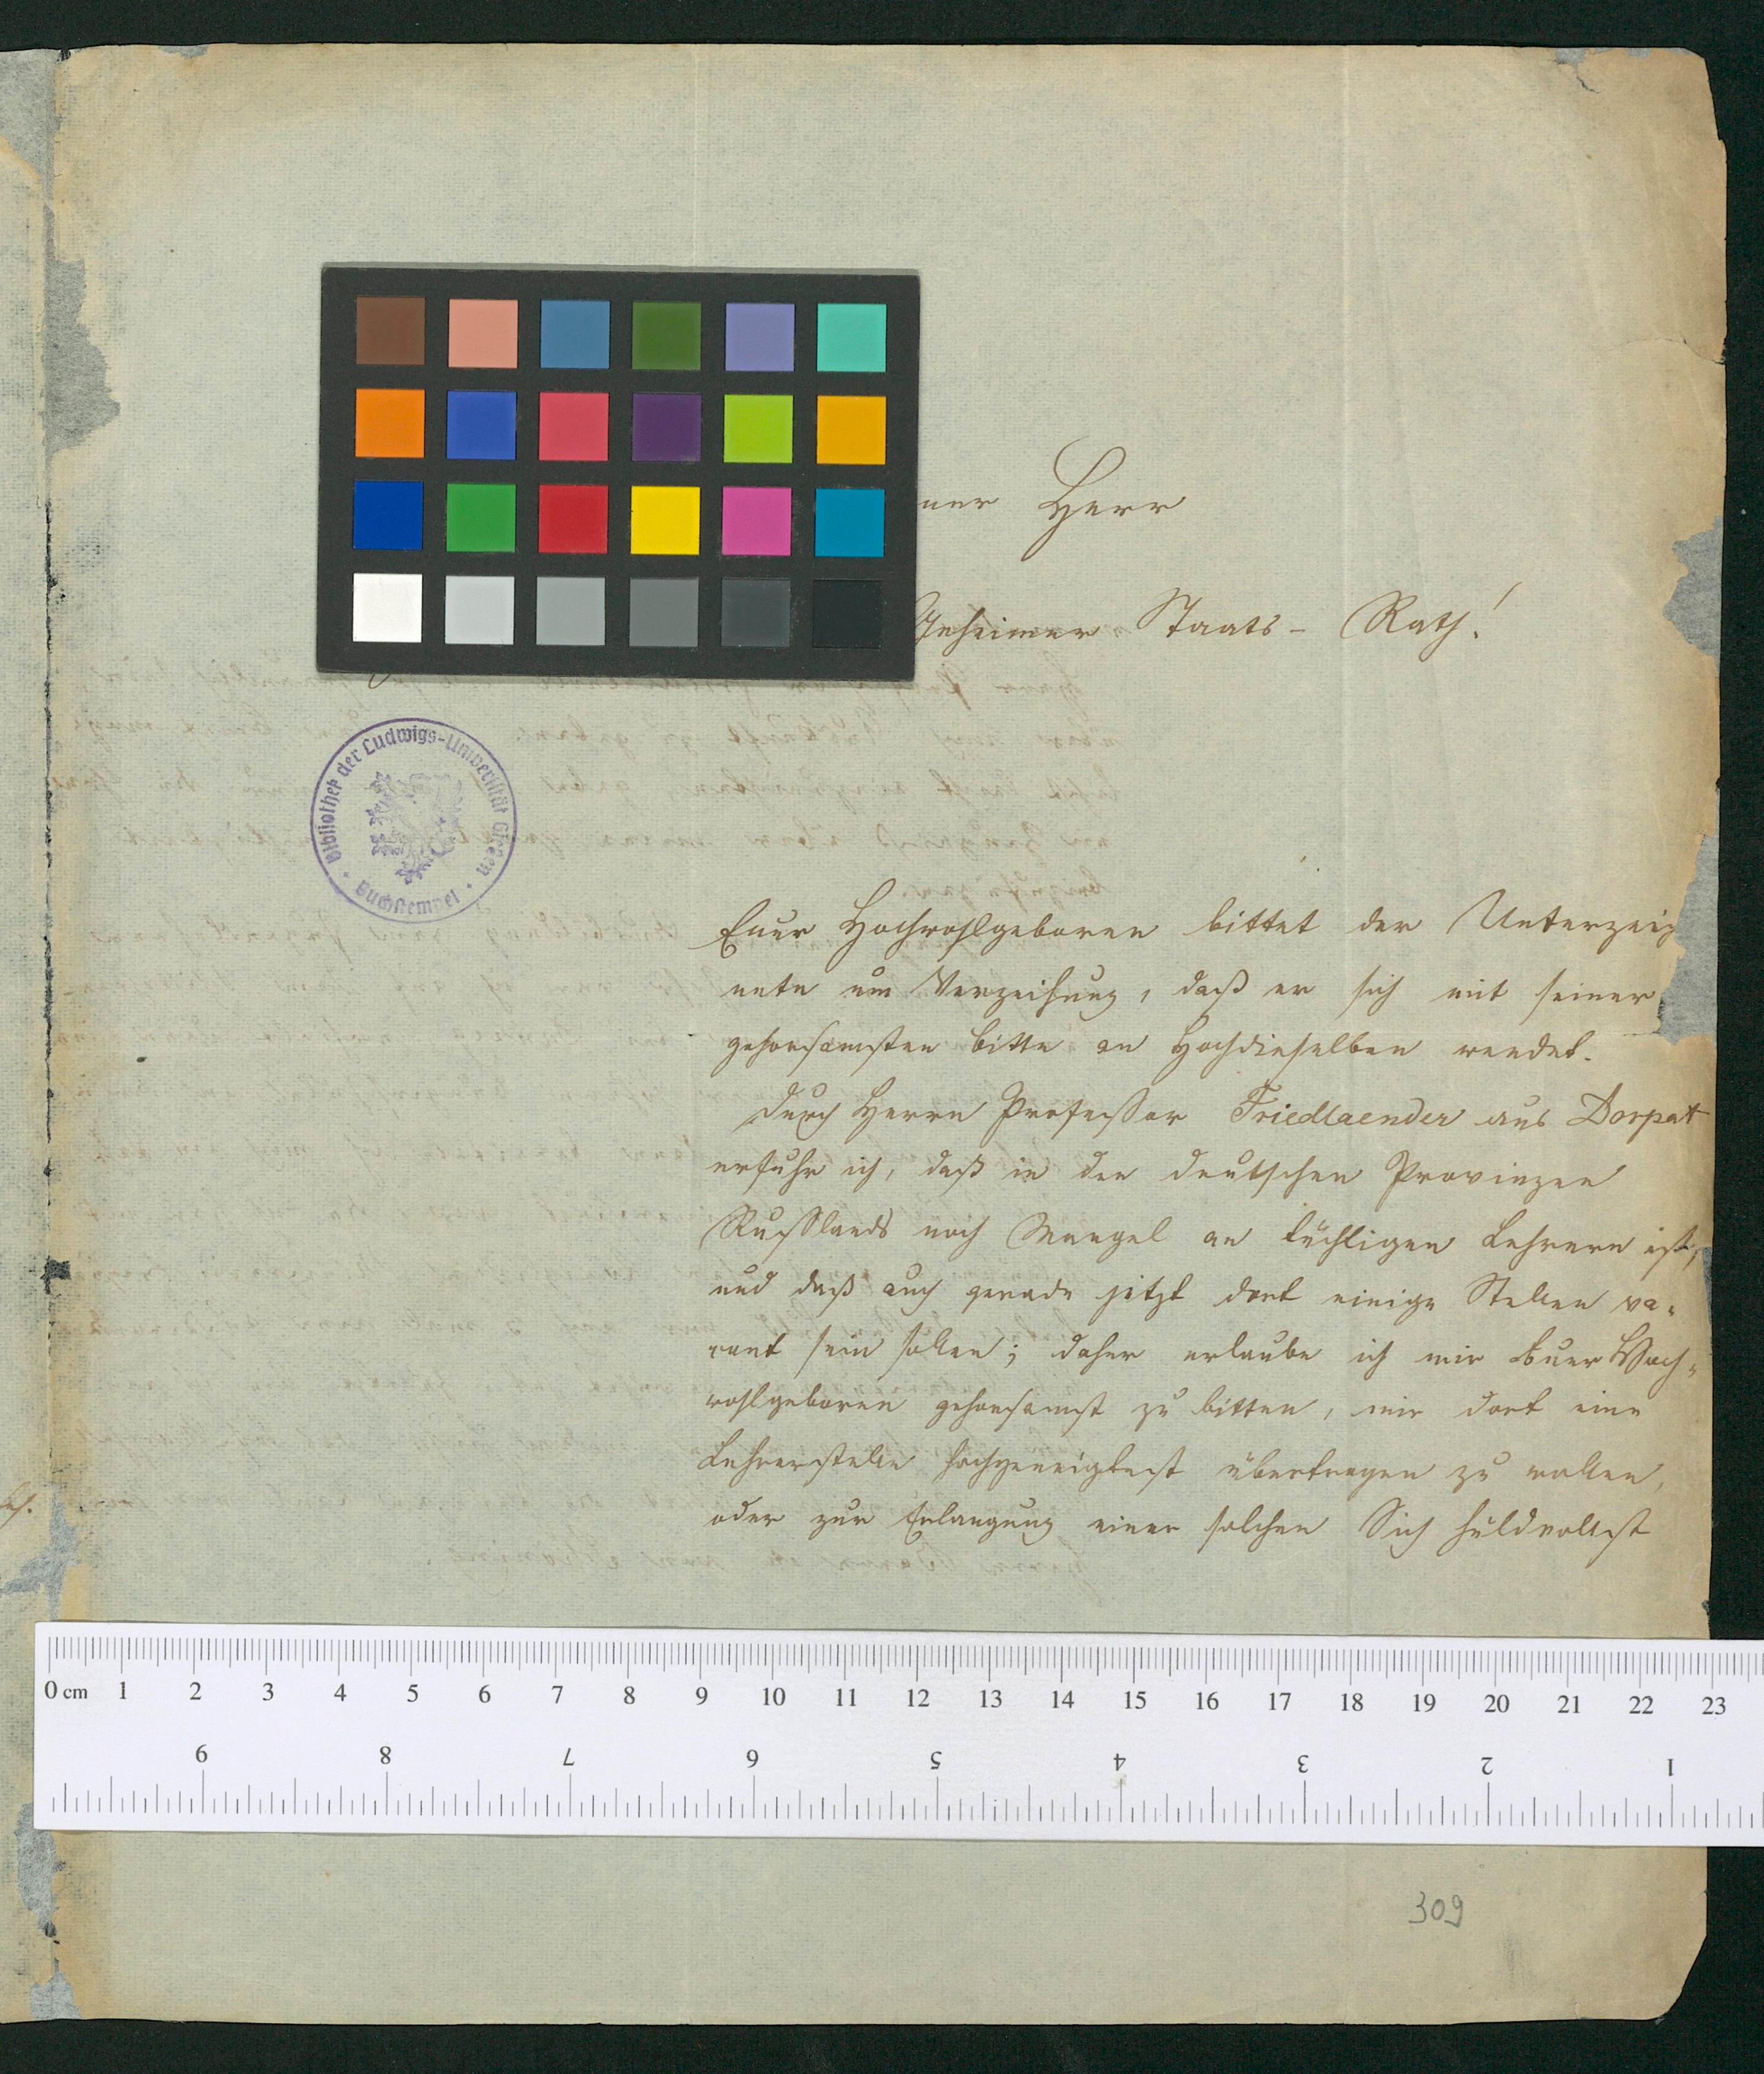 ner Herr
Geheimer Staats- Rath!
Bibliothek der Ludwigs-Universität Giessen
Buchstempel
Euer Hochwohlgeboren bittet der Unterzeich
nete um Verzeihung, daß er sich mit seiner
gehorsamsten Bitte an Hochdieselben wendet.
Durch Herrn Professor Friedlaender aus Dorpat
erfuhr ich, daß in den deutschen Provinzen
Russlands noch Mangel an tüchtigen Lehrern ist,
und daß auch gerade jetzt dort einige Stellen va-
cant sein sollen; daher erlaube ich mir Euer Hoch-
wohlgeboren gehorsamst zu bitten, mir dort eine
Lehrerstelle hochgeneigtest übertragen zu wollen,
oder zur Erlangung einer solchen Sich huldvollst
0 cm 1 2 3 4 5 6 7 8 9 10 11 12 13 14 15 16 17 18 19 20 21 22 23
9 8 7 6 5 4 3 2 1
309